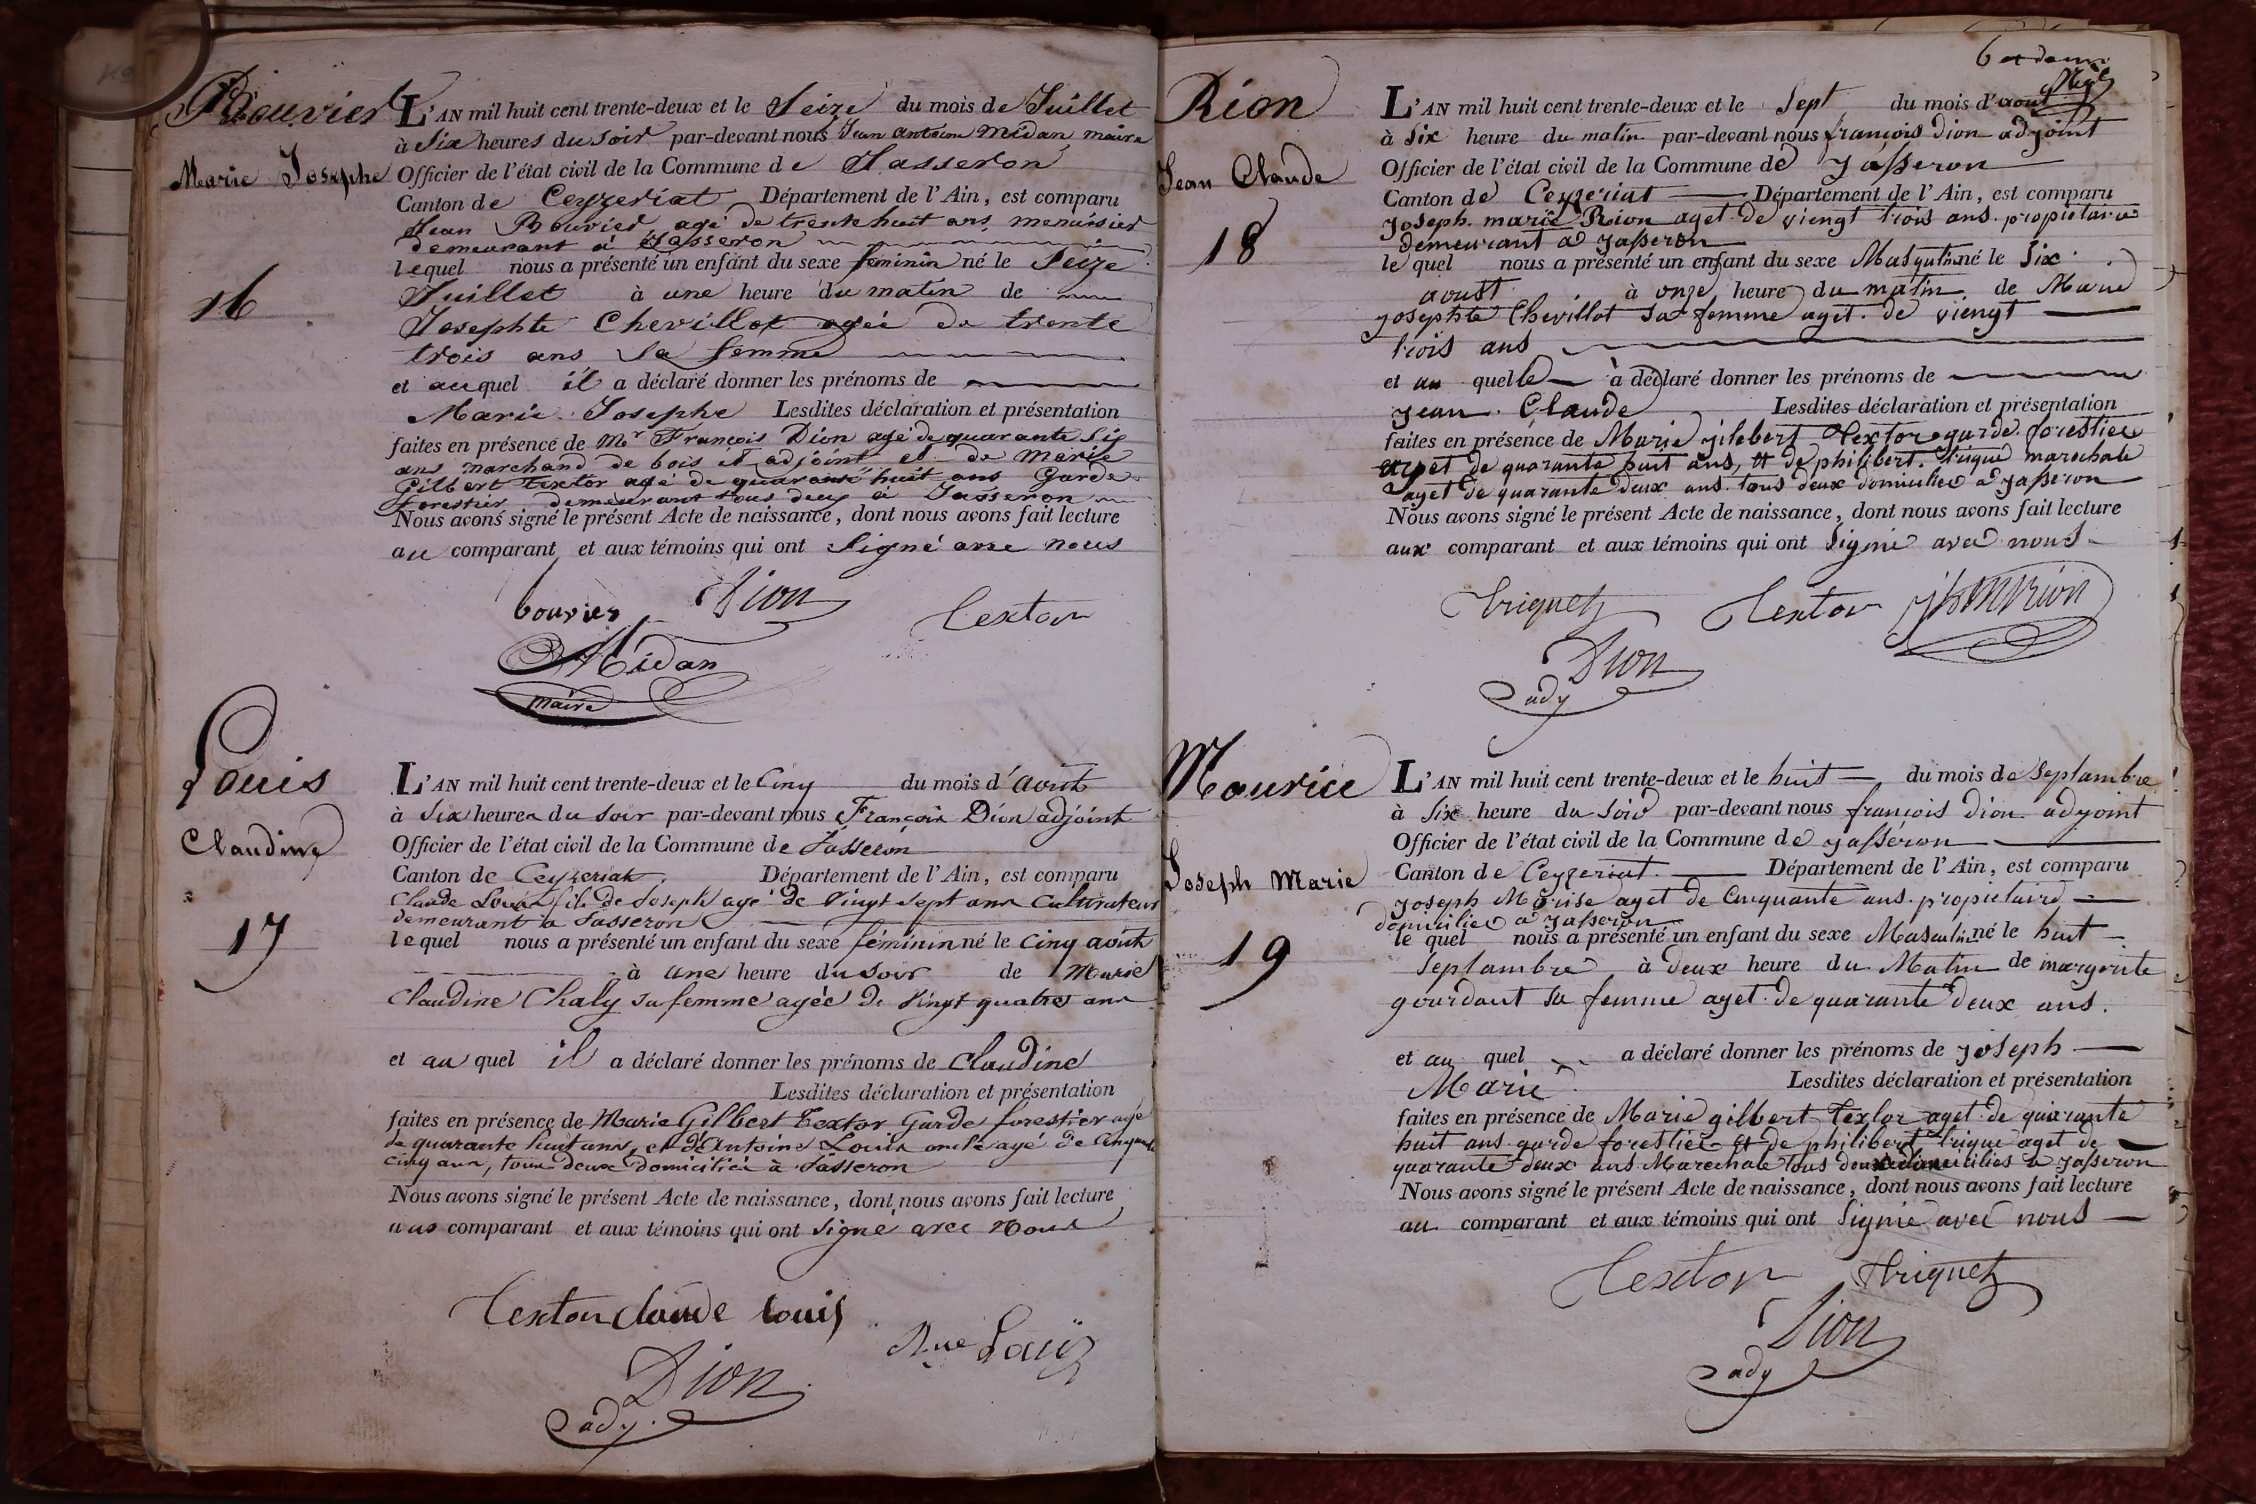 Bouvier
Marie Josephe
16
L'AN mil huit cent trente-deux et le Seize du mois de Juillet
à Six heures du soir par-devant nous Jean antoine Midan, maire
Officier de l'état civil de la Commune de Jasseron
Canton de Ceyzeriat Département de l'Ain, est comparu
Jean Bouvier agé de trente huit ans, menuisier
demeurant à Jasseron
lequel nous a présenté un enfant du sexe féminin né le Seize
Juillet à une heure du matin de
Josephte Chevillot agée de trente
trois ans sa femme
et auquel il a déclaré donner les prénoms de
Marie Josephe Lesdites déclaration et présentation
faites en présence de Mr François Dion agé de quarante six
ans marchand de bois et adjoint et de Marie
Gilbert textor agé de quarante huit ans Garde
forestier demeurant tous deux à Jasseron
Nous avons signé le présent Acte de naissance, dont nous avons fait lecture
au comparant et aux témoins qui ont Signé avec nous
bouvier Dion Textor
Midan
maire
Louis
Claudine
17
L'AN mil huit cent trente-deux et le Cinq du mois d'août
à Six heures du soir par-devant nous François Dion adjoint
Officier de l'état civil de la Commune de Jasseron
Canton de Ceyzeriat Département de l'Ain, est comparu
Claude Louis fils de Joseph agé de Vingt sept ans Cultivateur
demeurant à Jasseron
lequel nous a présenté un enfant du sexe féminin né le cinq août
à une heure du soir de Marie
Claudine Chaly sa femme agée de Vingt quatre ans
et au quel il a déclaré donner les prénoms de Claudine
Lesdites déclaration et présentation
faites en présence de Marie Gilbert Textor Garde forestier agé
de quarante huit ans, et d'Antoine Louis oncle agé de Cinquante
cinq ans, tous deux Domiciliés à Jasseron
Nous avons signé le présent Acte de naissance, dont nous avons fait lecture
aus comparant et aux témoins qui ont Signé avec Nous
Textor claude Louis
Dion
adj.
6 et demi
Rion
Jean Claude
18
L'AN mil huit cent trente-deux et le Sept du mois d'aout
à Six heure du matin par-devant nous françois dion adjoint
Officier de l'état civil de la Commune de jasseron
Canton de Ceyzeriat Département de l'Ain, est comparu
joseph marie Rion aget de viengt trois ans propietaire
demeurant a jasseron
le quel nous a présenté un enfant du sexe Masqulin né le Six
aoust à onze heure du matin de Marie
josephte Chevillot sa femme aget de viengt
trois ans
et au quelle à déclaré donner les prénoms de
jean Claude Lesdites déclaration et présentation
faites en présence de Marie jilebert Textor garde forestier
aget de quarante huit ans, et de philibert trique marechale
aget de quarante deux ans tous deux domicilie a jasseron
Nous avons signé le présent Acte de naissance, dont nous avons fait lecture
aux comparant et aux témoins qui ont Signie avec nous
Triquet Textor
Dion
adj
Maurice
Joseph Marie
19
L'AN mil huit cent trente-deux et le huit du mois de Septambre
à Six heure du Soir par-devant nous françois dion adjoint
Officier de l'état civil de la Commune de jasseron
Canton de Ceyzeriat Département de l'Ain, est comparu
joseph Morise aget de Cinquante ans propietaire
domicilie a jasseron
le quel nous a présenté un enfant du sexe Masculin né le huit
Septambre à deux heure du Matin de margorite
gourdant sa femme aget de quarante deux ans.
et au quel a déclaré donner les prénoms de joseph
Marie Lesdites déclaration et présentation
faites en présence de Marie gilbert Textor aget de quarante
huit ans garde forestier et de philibert trique aget de
quarante deux ans Marechale tous deux domicilies a jasseron
Nous avons signé le présent Acte de naissance, dont nous avons fait lecture
au comparant et aux témoins qui ont Signie avec nous
Textor Triquet
Dion
adj